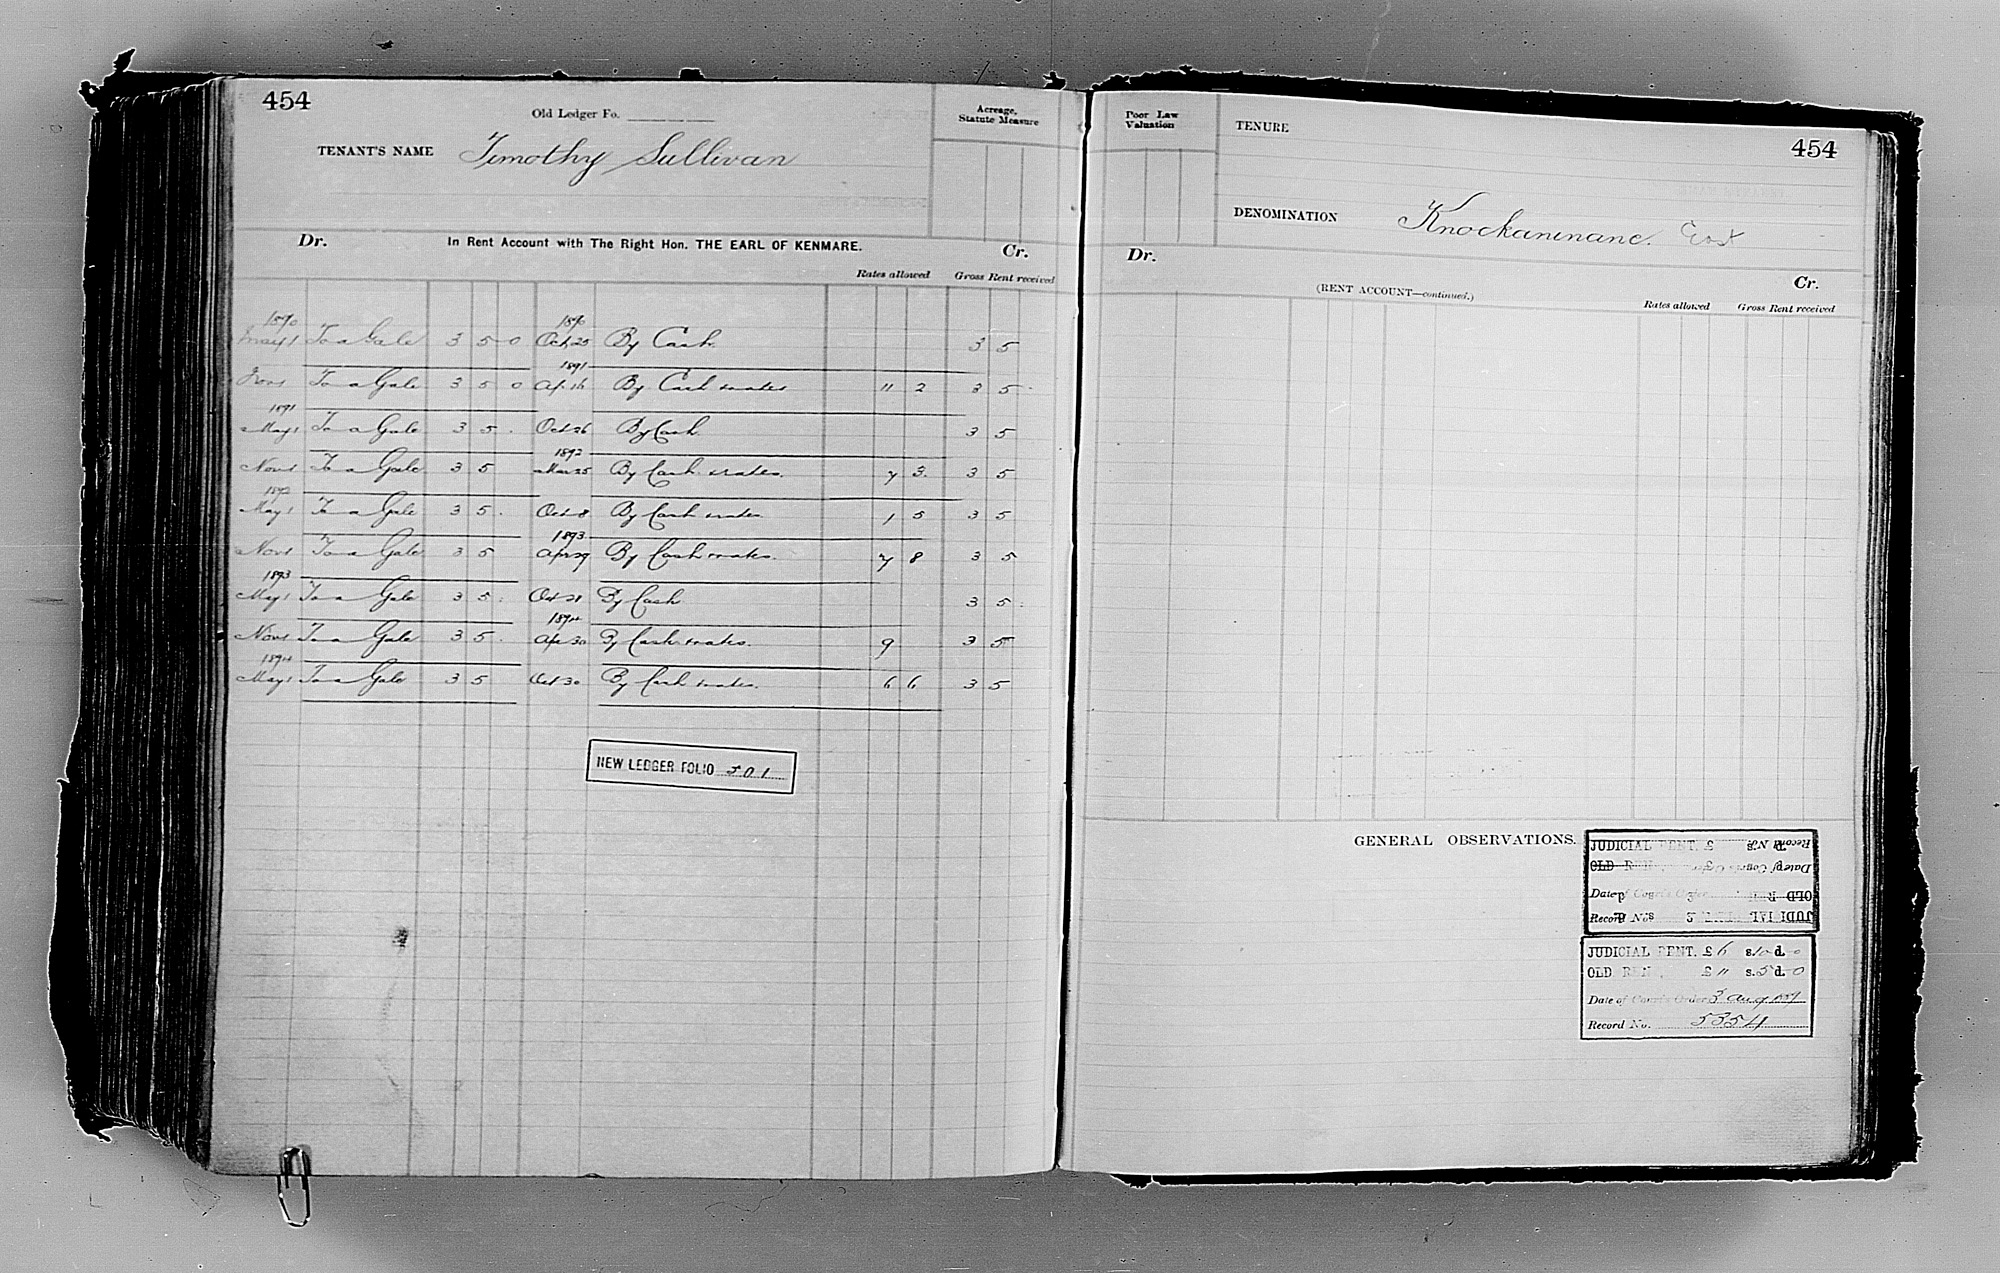 454
Old Ledger Fo.
Acreage,
Statute Measure
TENANT'S NAME Timothy Sullivan
Dr. In Rent Account with The Right Hon. THE EARL OF KENMARE. Cr.
Rates allowed Gross Rent received
1890 1890
May 1 To a Gale 3 5 0 Oct 25 By Cash 3 5
1891
Nov 1 To a Gale 3 5 0 Ap. 16 By Cash & rates 11 2 3 5
1891
May 1 To a Gale 3 5 Oct 26 By Cash 3 5
1892
Nov 1 To a Gale 3 5 Mar 25 By Cash & rates. 7 3 3 5
1892
May 1 To a Gale 3 5 Oct 8 By Cash & rates 1 5 3 5
1893
Nov 1 To a Gale 3 5 Apr 29 By Cash & rates. 7 8 3 5
1893
May 1 To a Gale 3 5 Oct 21 By Cash 3 5
1894
Nov 1 To a Gale 3 5 Apr 30 By Cash & rates. 9 3 5
1894
May 1 To a Gale 3 5 Oct 30 By Cash & rates. 6 6 3 5
NEW LEDGER FOLIO 501
Poor Law
Valuation
TENURE
454
DENOMINATION Knockaninane. East
Dr. Cr.
(RENT ACCOUNT—continued.)
Rates allowed Gross Rent received
GENERAL OBSERVATIONS.
JUDICIAL RENT. £
OLD RENT
Date of Court's Order
Record No.
JUDICIAL RENT. £ 6 s. 10 d. 0
OLD RENT, £ 11 s. 5 d. 0
Date of Court's Order 3 Aug 1889
Record No. 5354